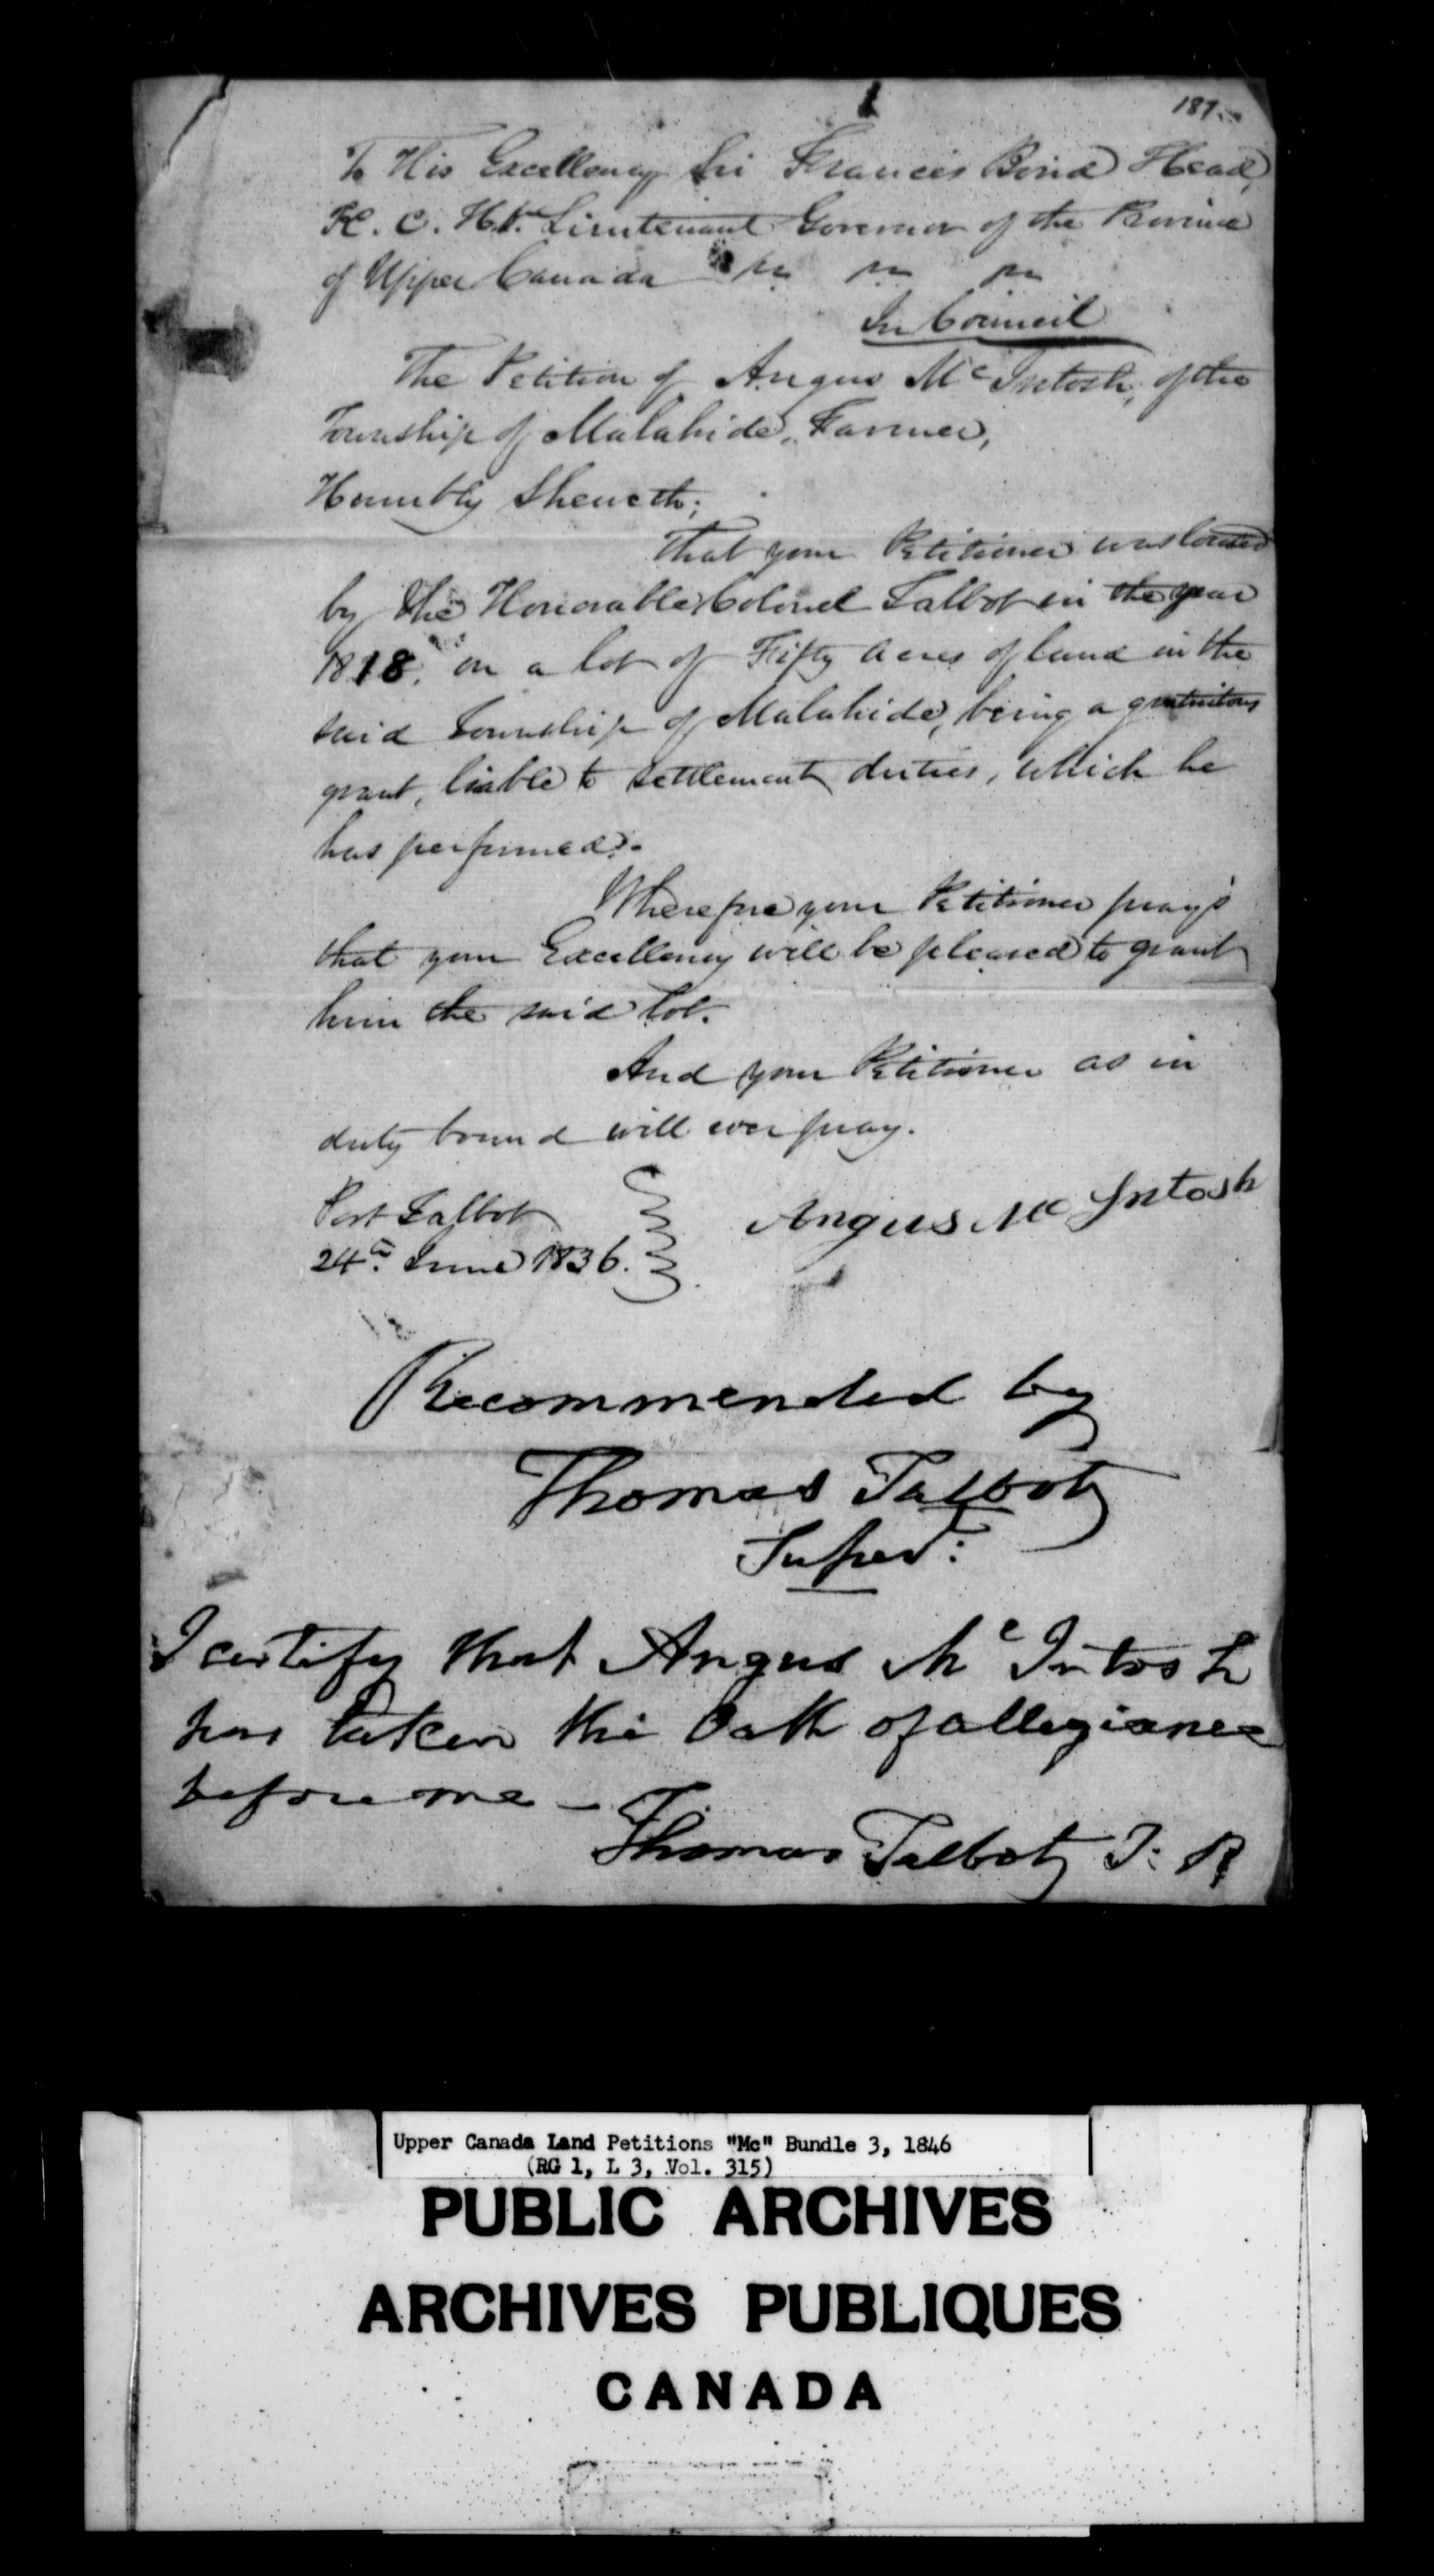 187
To His Excellency Sir Francis Bond Head,
K. C. H. Lieutenant Governor of the Province
of Upper Canada &c &c &c
In Council
The Petition of Angus McIntosh, of the
Township of Malahide, Farmer,
Humbly Sheweth;
That your Petitioner was located
by the Honorable Colonel Talbot in the year
1818, on a lot of Fifty acres of land in the
said Township of Malahide, being a gratuitous
grant, liable to settlement duties, which he
has performed.-
Wherefore your Petitioner prays
that your Excellency will be pleased to grant
him the said lot.
And your Petitioner as in
duty bound will ever pray.
Port Talbot
24th June 1836.
Angus McIntosh
Recommended by
Thomas Talbot
Supert:
I certify that Angus McIntosh
has taken the Oath of allegiance
before me -
Thomas Talbot J: P
Upper Canada Land Petitions "Mc" Bundle 3, 1846
(RG 1, L 3, Vol. 315)
PUBLIC ARCHIVES
ARCHIVES PUBLIQUES
CANADA